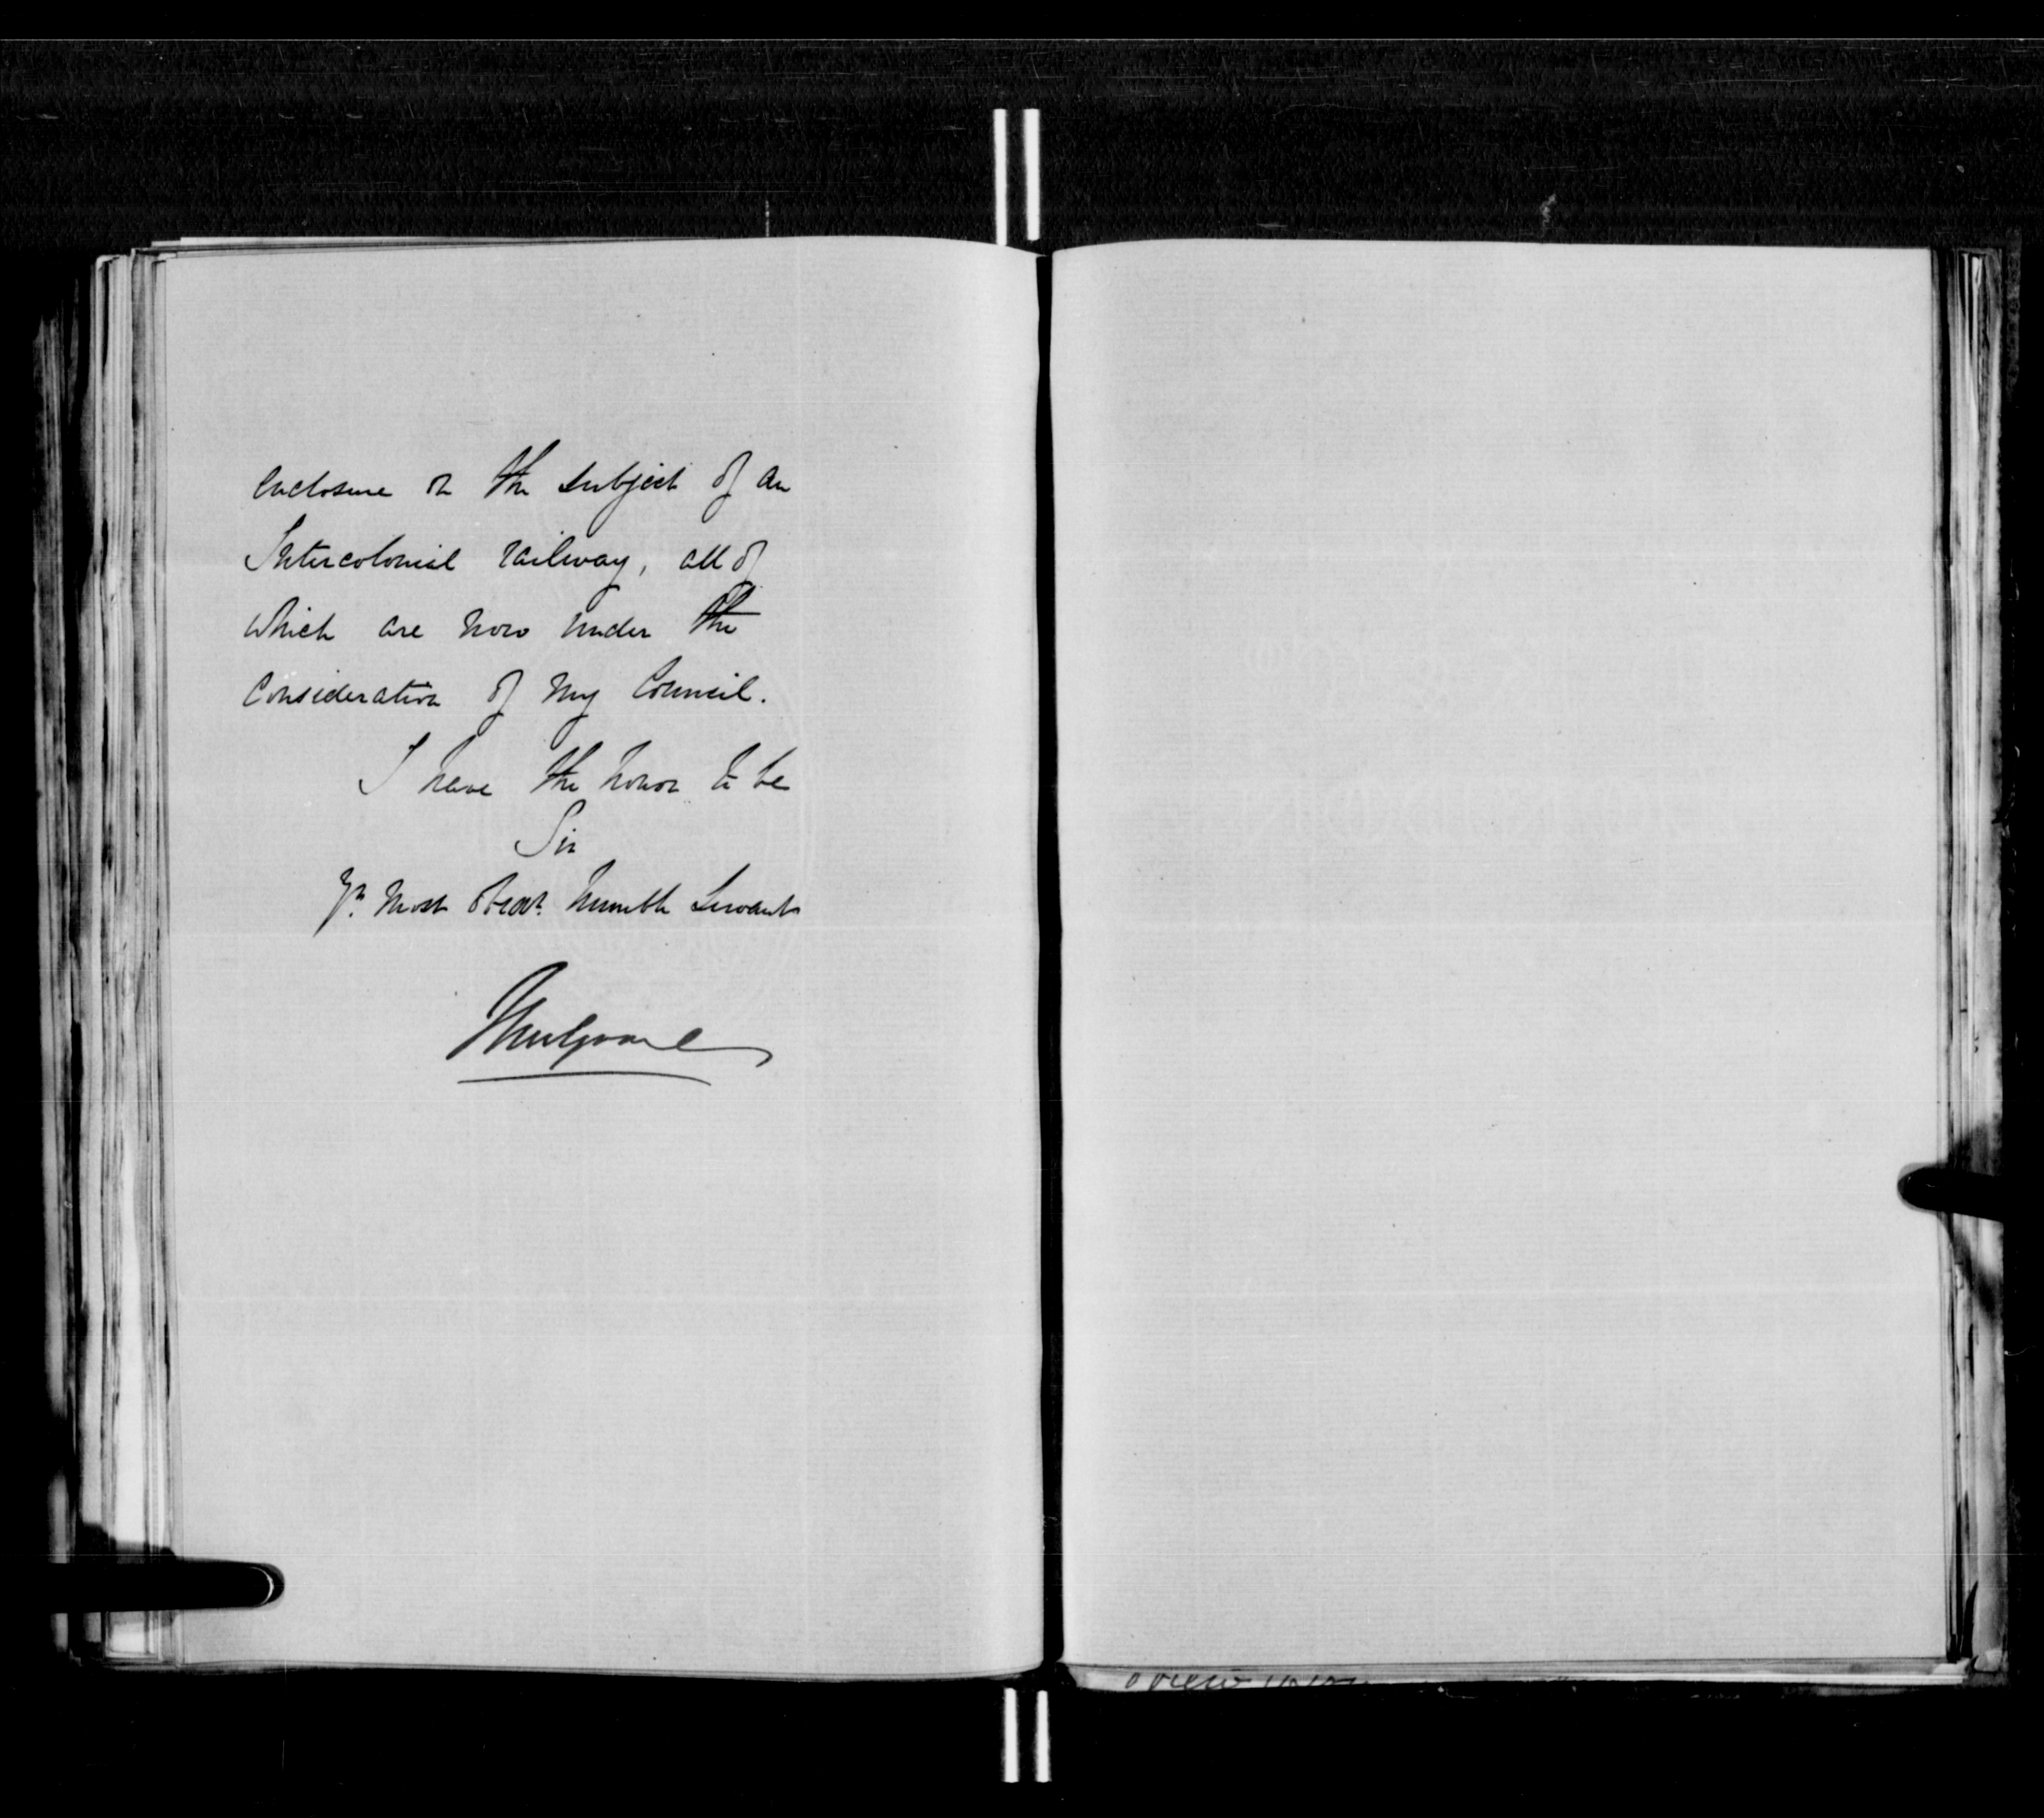 enclosure on the subject of an
Intercolonial railway, all of
which are now under the
Consideration of my Council.
I have the honor to be
Sir
Yr. most obedt. humble Servant
Mulgrave